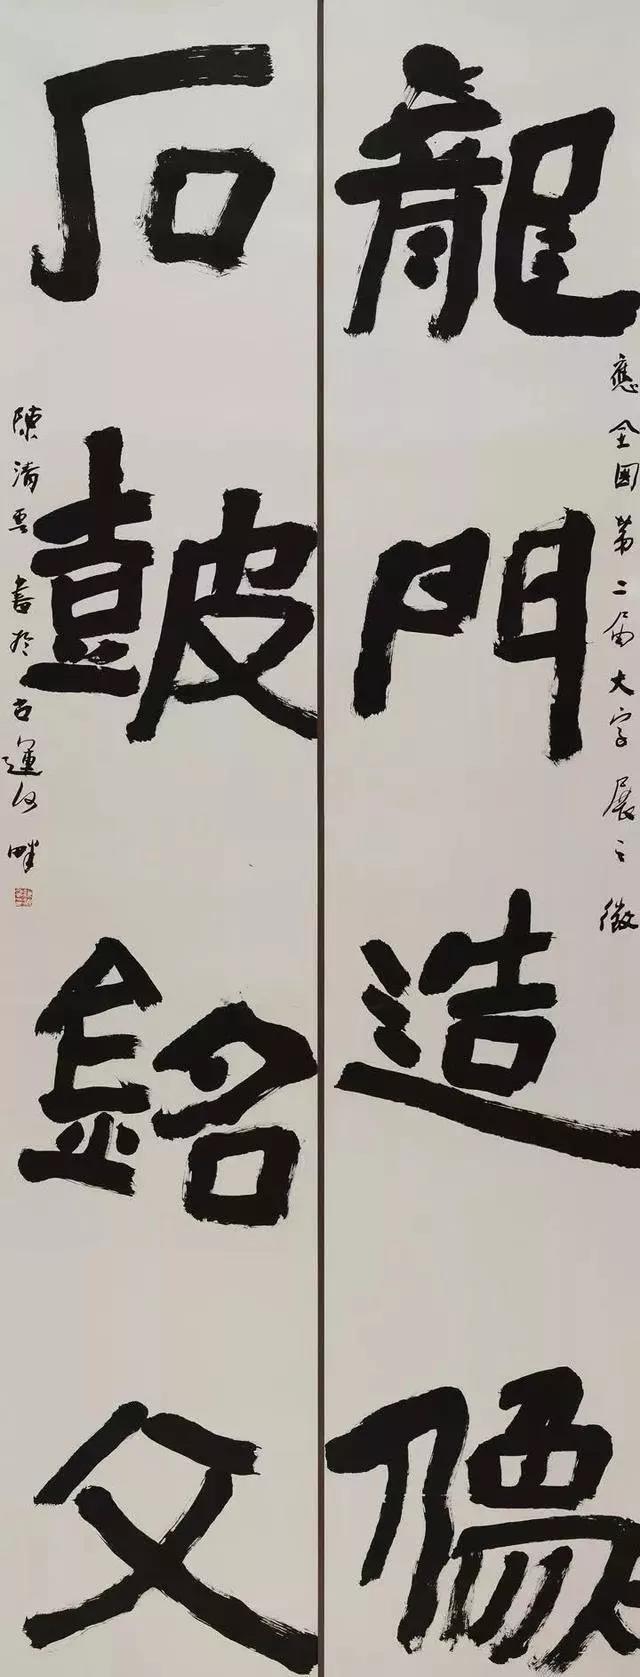 龍門造像
應全國第二屆大字展之徵
石皷銘文
陳清雲書於古運河畔